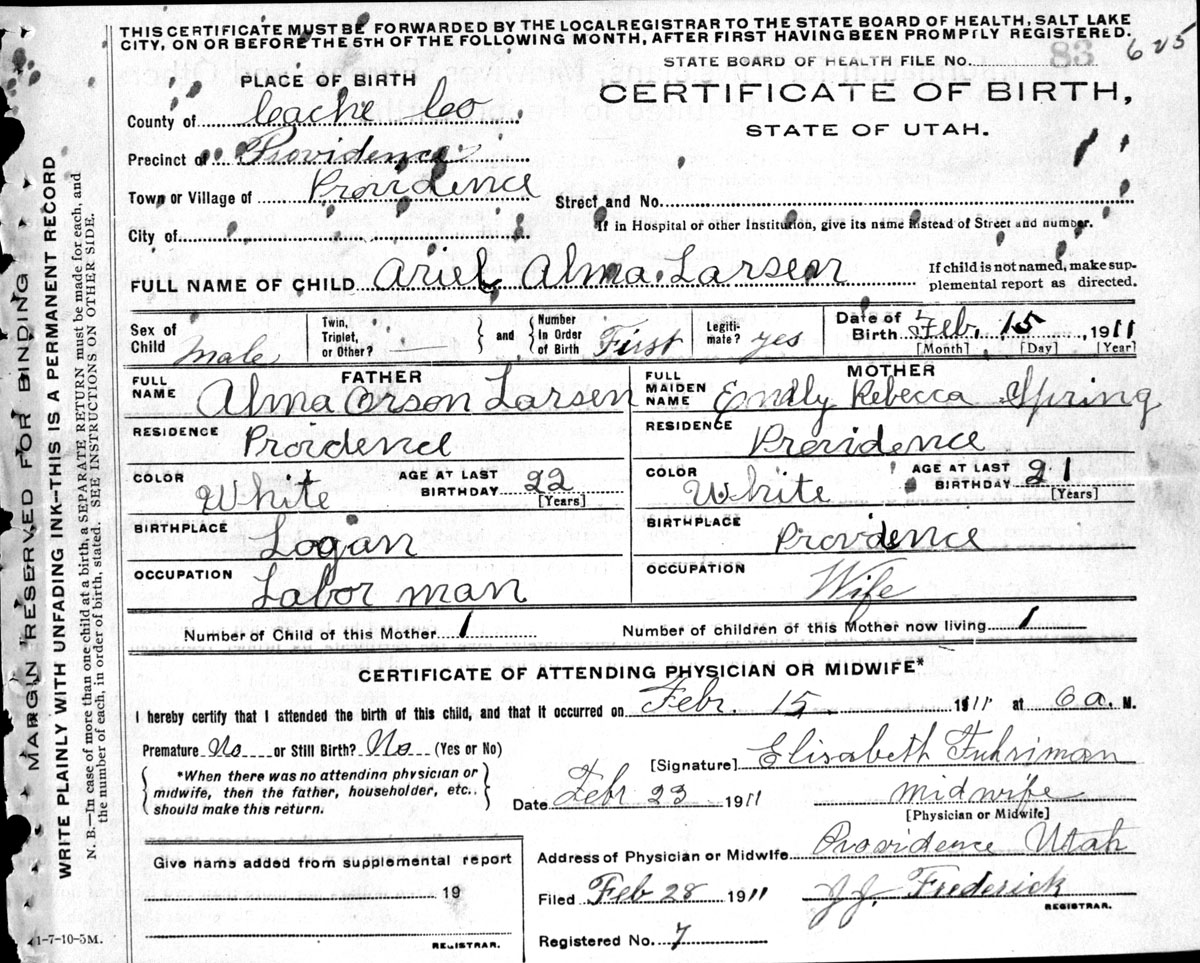 THIS CERTIFICATE MUST BE FORWARDED BY THE LOCAL REGISTRAR TO THE STATE BOARD OF HEALTH, SALT LAKE
CITY, ON OR BEFORE THE 5TH OF THE FOLLOWING MONTH, AFTER FIRST HAVING BEEN PROMPTLY REGISTERED.
625
STATE BOARD OF HEALTH FILE No. 83
PLACE OF BIRTH
CERTIFICATE OF BIRTH,
STATE OF UTAH.
County of Cache Co
Precinct of Providence
Town or Village of Providence
Street and No.
City of
If in Hospital or other Institution, give its name instead of Street and number.
FULL NAME OF CHILD Ariel Alma Larsen
If child is not named, make sup-
plemental report as directed.
Sex of Child Male
Twin, Triplet, or Other? —
and
Number in Order of Birth First
Legiti-mate? yes
Date of Birth Feb. 15 1911
[Month] [Day] [Year]
FATHER
MOTHER
FULL NAME Alma Orson Larsen
FULL MAIDEN NAME Emily Rebecca Spring
RESIDENCE Proidence
RESIDENCE Providence
COLOR White AGE AT LAST BIRTHDAY 22 [Years]
COLOR White AGE AT LAST BIRTHDAY 21 [Years]
BIRTHPLACE Logan
BIRTHPLACE Providence
OCCUPATION Labor man
OCCUPATION Wife
Number of Child of this Mother 1
Number of children of this Mother now living 1
CERTIFICATE OF ATTENDING PHYSICIAN OR MIDWIFE*
I hereby certify that I attended the birth of this child, and that it occurred on Febr. 15 1911 at 6 a. M.
Premature No or Still Birth? No (Yes or No)
[Signature] Elisabeth Fuhriman
*When there was no attending physician or
midwife, then the father, householder, etc.,
should make this return.
Date Febr 23 1911
midwife
[Physician or Midwife]
Give name added from supplemental report
19
REGISTRAR.
Address of Physician or Midwife Providence Utah
Filed Feb 28 1911
J. J. Frederick
REGISTRAR.
Registered No. 7
1-7-10-5M.
MARGIN RESERVED FOR BINDING
WRITE PLAINLY WITH UNFADING INK—THIS IS A PERMANENT RECORD
N. B.—In case of more than one child at a birth, a SEPARATE RETURN must be made for each, and
the number of each, in order of birth, stated. SEE INSTRUCTIONS ON OTHER SIDE.